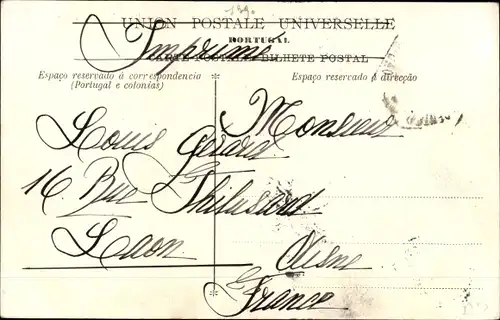 UNION POSTALE UNIVERSELLE
PORTUGAL
CARTE POSTALE BILHETE POSTAL
Imprimé
Espaço reservado á correspondencia
(Portugal e colonias)
Espaço reservado á direcção
Monsieur
Louis Gérard
16 Rue Thibesard
Laon
Aisne
France